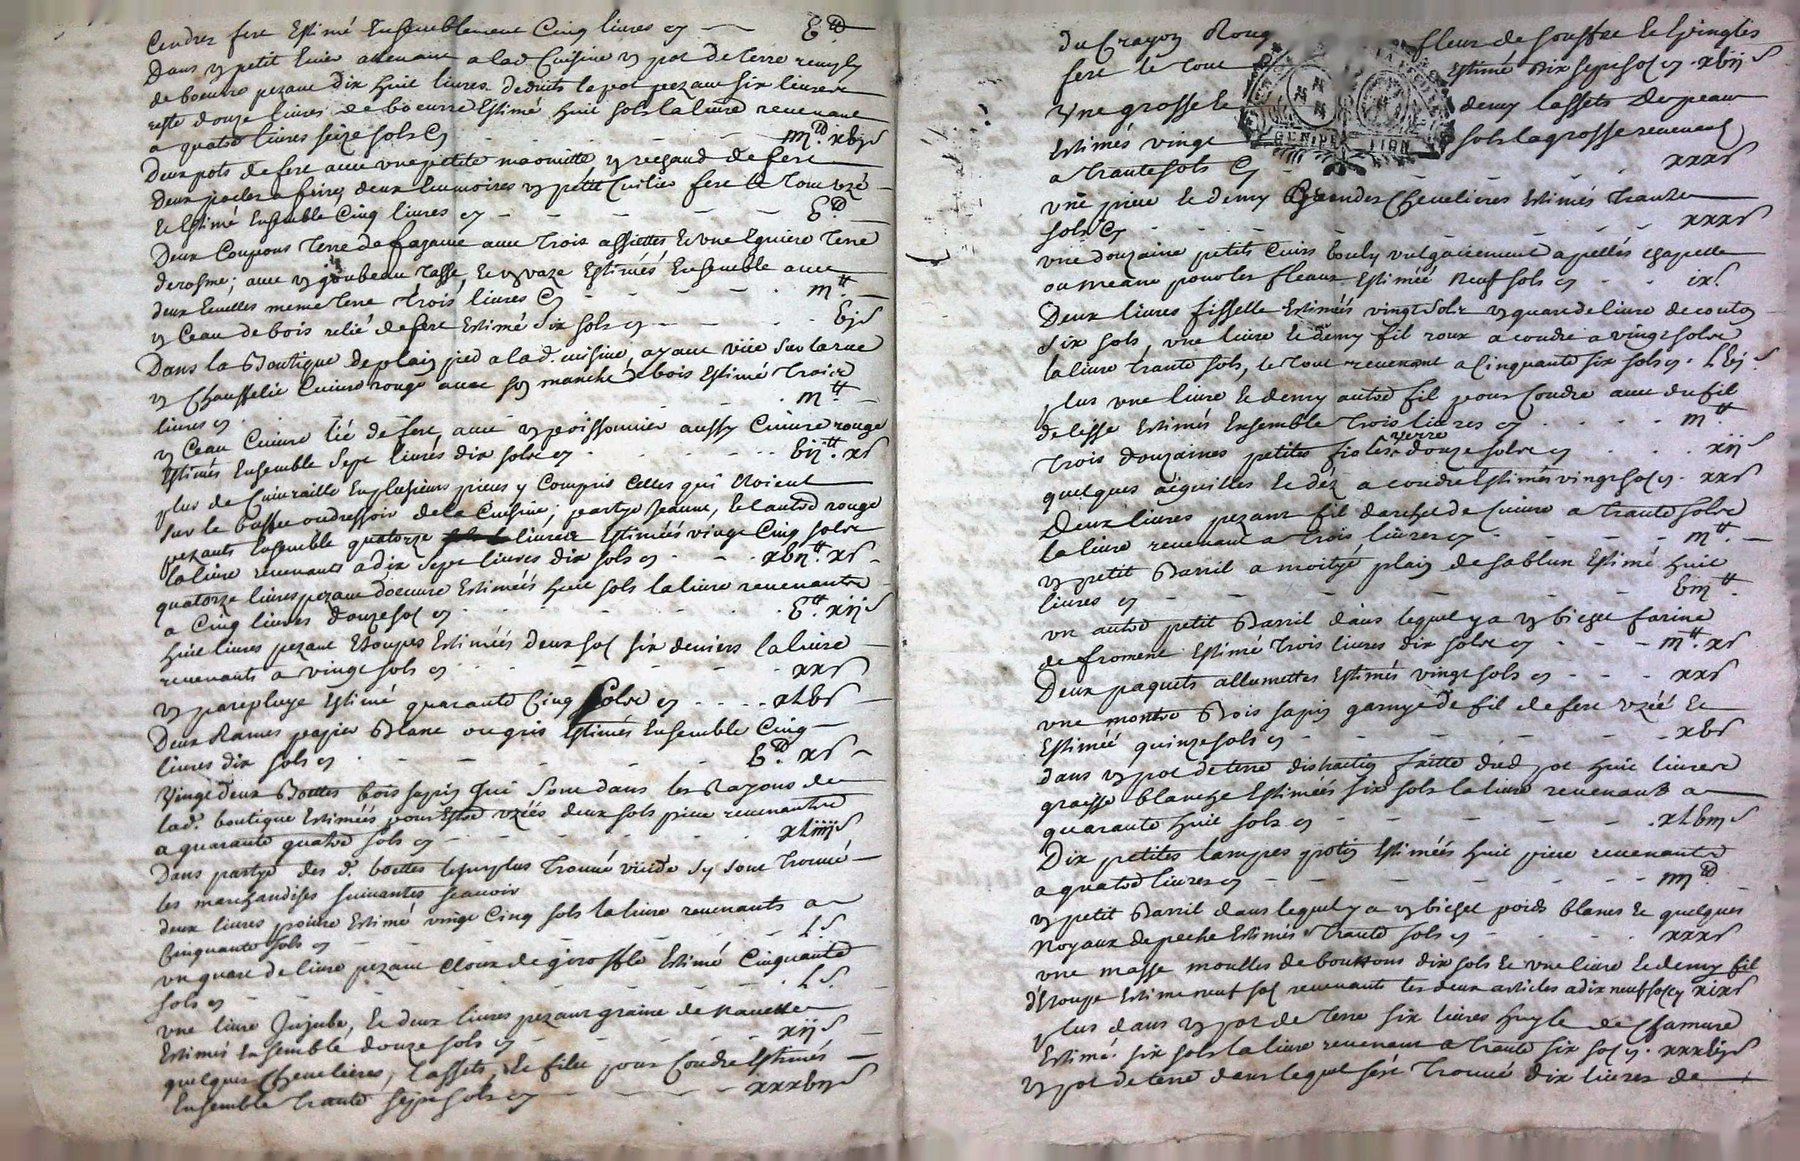 Cendrer fere Estimé Ensemblement Cinq livres cy
Dans un petit Evier attenant a lad Cuisine un pot de terre remply
de boeurre pezant dix huit livres deduits le pot pezant six livres
reste douze livres de boeurre Estimé huit sols la livre revenant
a quatre livres seize sols Cy
Deux pots de fere avec une petite marmitte, un rechaud de fere
deux poeles a frire, deux Ecumoires un petit Cuilier fere le tout uzé
Et Estimé Ensemble Cinq livres cy
Deux Coupons terre de fayance avec trois assiettes Et une Eguiere terre
avec un goubeau tasse, Et un vaze Estimés Ensemble avec
deux Ecuelles meme terre trois livres Cy
un Ceau de bois relié de fere Estimé Six sols cy
Dans la Boutique de plain pied a la d. cuisine, ayant viie sur la rue
un Chauffelit Cuivre rouge avec son manche de bois Estimé trois
livres cy
un Ceau Cuivre lié de fere avec un poissonnier aussy Cuivre rouge
Estimés Ensemble Sept livres dix sols cy
plus de Cuivraille En plusieurs pieces y Compris Celles qui Etoient
sur le buffet ou dressoir de la Cuisine; partye Jeaune, Et l'autre rouge
pezants Ensemble quatorze livres Estimées vingt Cinq sols
la livre revenants a dix Sept livres dix sols cy xvii lt. xs
quatorze livres pezant d'oeuvre Estimées huit sols la livre revenants
a Cinq livres douze sol cy
huit livres pezant Etoupes Estimées deux sol six deniers la livre
revenants a vingt sols cy xxs
un parepluye Estimé quarante Cinq sols cy xLvs
Deux Rames papier Blanc ou gris Estimés Ensemble Cinq
livres dix sols cy
Vingt deux Boettes bois sapin qui Sont dans les Rayons de
lad. boutique Estimées pour Estre uzées deux sols piece revenants
a quarante quatre sols cy xLiiijs
Dans partye des d. boettes le surplus trouvé vuide sy sont trouvé
les marchandises suivantes scavoir
deux livres poivre Estimé vingt Cinq sols la livre revenants a
Cinquante sols cy L.s
un quart de livre pezant Cloux de giroffle Estimé Cinquante
sols cy L.s
une livre Jujube, Et deux livres pezant graine de navette
Estimés Ensemble douze sols cy xijs
quelques Chevelieres, lassets, Et filet pour Coudre Estimés
Ensemble trante sept sols cy xxxvijs
du Crayon Roug fleur de souffre Et Epingles
fere le tout Estimé dix sept sol cy. xvijs
Une grosse Et demy lassets de peau
Estimés vingt sols la grosse revenants
a trante sols Cy xxxs
une piece Et demy Grandes Chevelieres Estimés trante
sols Cy xxxs
une douzaine petits Cuirs bouly vulgairement apellés Chapelle
ou meane pour les fleaux Estimée neuf sols cy ixs.
Deux livres fisselle Estimées vingt sols un quart de livre de coton
six sols, une livre Et demy fil roux a coudre a vingt sols
la livre trante sols, le tout revenant a Cinquante six sols cy. Lvjs
plus une livre Et demy autre fil pour Coudre avec du fil
de lisse Estimés Ensemble trois livres cy
Trois douzaines petites fioles verre douze sols cy xijs
quelques aiguilles Et dez a coudre Estimés vingt sol cy. xxs
Deux livres pezant fil darchet de Cuivre a trante sols
la livre revenant a trois livres cy
un petit Barril a moityé plain de sablun Estimé huit
livres cy
un autre petit Barril dans lequel y a un bichet farine
de froment Estimé Trois livres dix sols cy
Deux paquets allumettes Estimés vingt sols cy xxs
une montre Bois sapin garnye de fil de fere uzée Et
Estimée quinze sols cy xvs
dans un pot de terre distraction faitte dud pot huit livres
graisse blanche Estimées six sols la livre revenants a
quarante huit sols cy xLviijs
Dix petites lampes potin Estimées huit piece revenants
a quatre livres cy
un petit Barril dans lequel y a un bichet poids blancs Et quelques
Noyaux de peche Estimés trante sols cy xxxs
une masse moulles de bouttons dix sols Et une livre Et demy fil
d'Etoupe Estime neuf sol revenants les deux articles a dix neuf sol cy xixs
plus dans un pot de terre six livres huyle de Chamure
Estimé six sols la livre revenant a trante six sol cy. xxxvjs
un pot de terre dans lequel s'est trouvé dix livres de
GENER LION